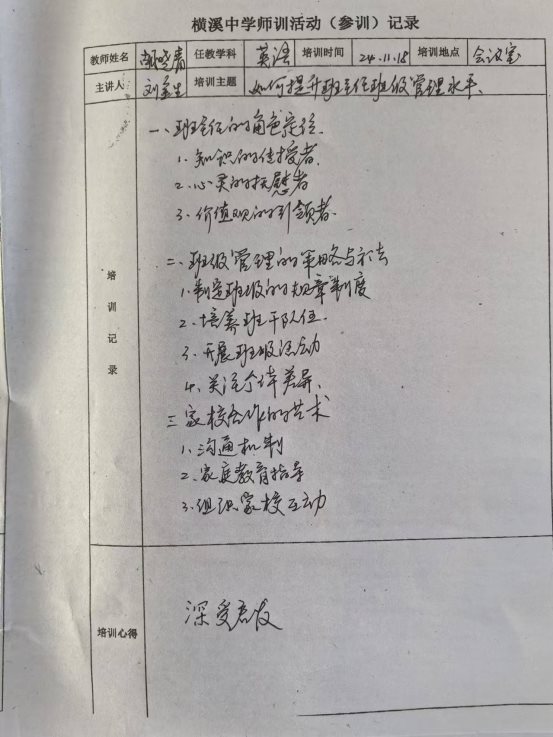 横溪中学师训活动（参训）记录
教师姓名 胡晓青 任教学科 英语 培训时间 24.11.18 培训地点 会议室
主讲人 刘益生 培训主题 如何提升班主任班级管理水平、
培训记录
一、班主任的角色定位.
1. 知识的传授者.
2. 心灵的抚慰者
3. 价值观的引领者.
二、班级管理的策略与方法
1. 制定班级的规章制度
2. 培养班干队伍.
3. 开展班级活动
4. 关注个体差异、
三 家校合作的艺术
1. 沟通机制
2. 家庭教育指导
3. 组织家校互动
培训心得
深受启发